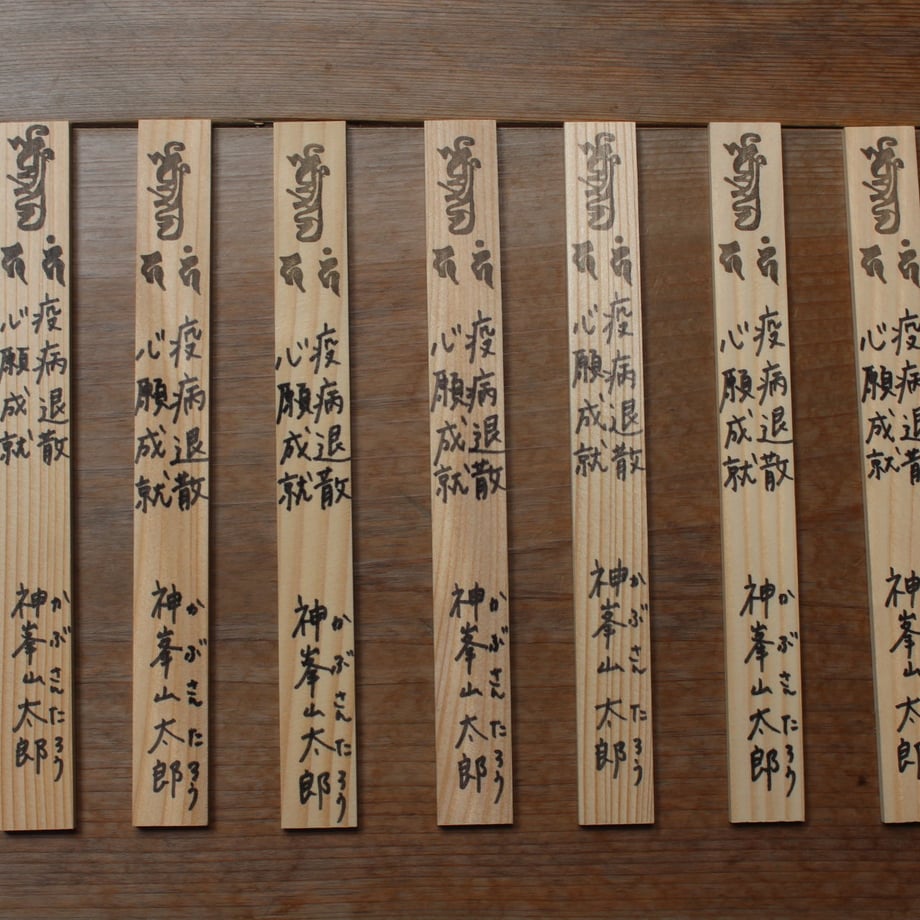 疫病退散
心願成就
かぶさんたろう
神峯山太郎
疫病退散
心願成就
かぶさんたろう
神峯山太郎
疫病退散
心願成就
かぶさんたろう
神峯山太郎
疫病退散
心願成就
かぶさんたろう
神峯山太郎
疫病退散
心願成就
かぶさんたろう
神峯山太郎
疫病退散
心願成就
かぶさんたろう
神峯山太郎
疫病退散
心願成就
神峯山太郎